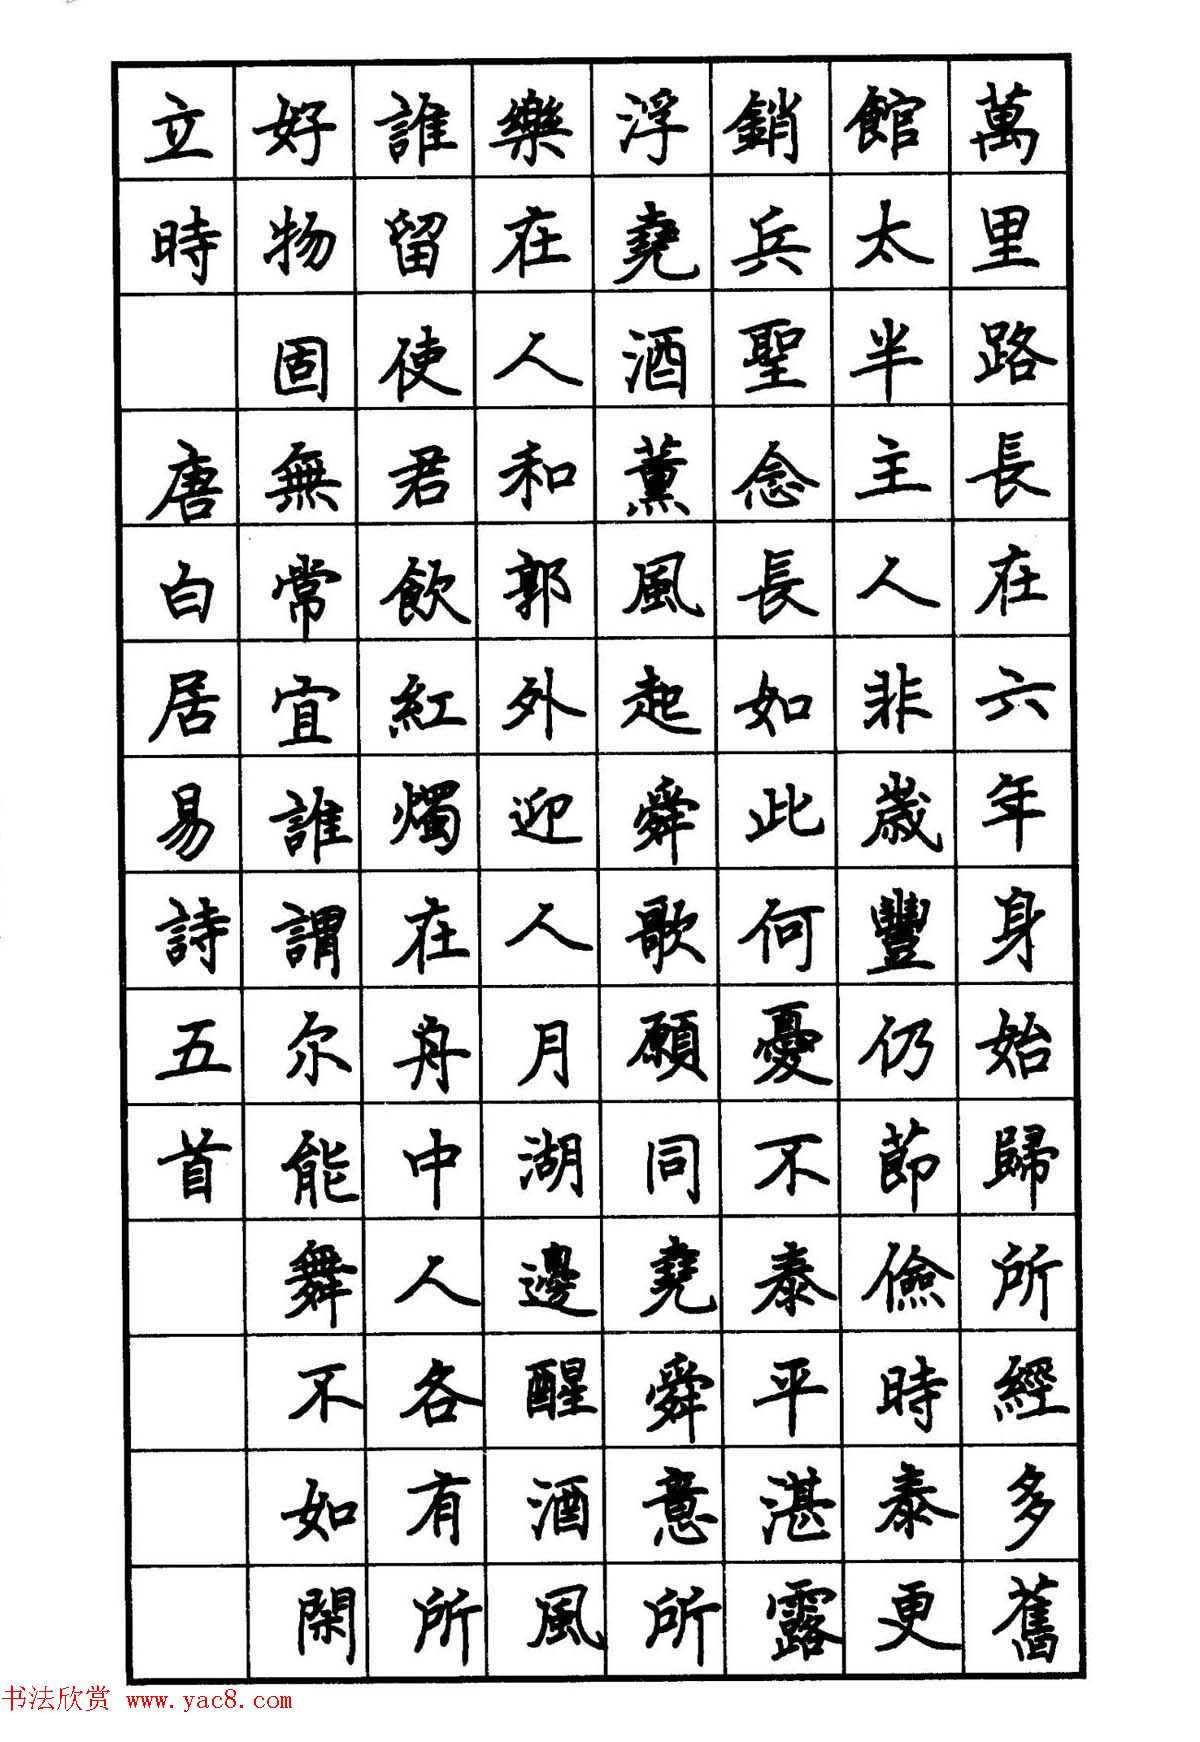 萬里路長在六年身始歸所經多舊
館太半主人非歲豐仍節儉時泰更
銷兵聖念長如此何憂不泰平湛露
浮堯酒薰風起舜歌願同堯舜意所
樂在人和郭外迎人月湖邊醒酒風
誰留使君飲紅燭在舟中人各有所
好物固無常宜誰謂尔能舞不如閑
立時 唐白居易詩五首
书法欣赏 www.yac8.com